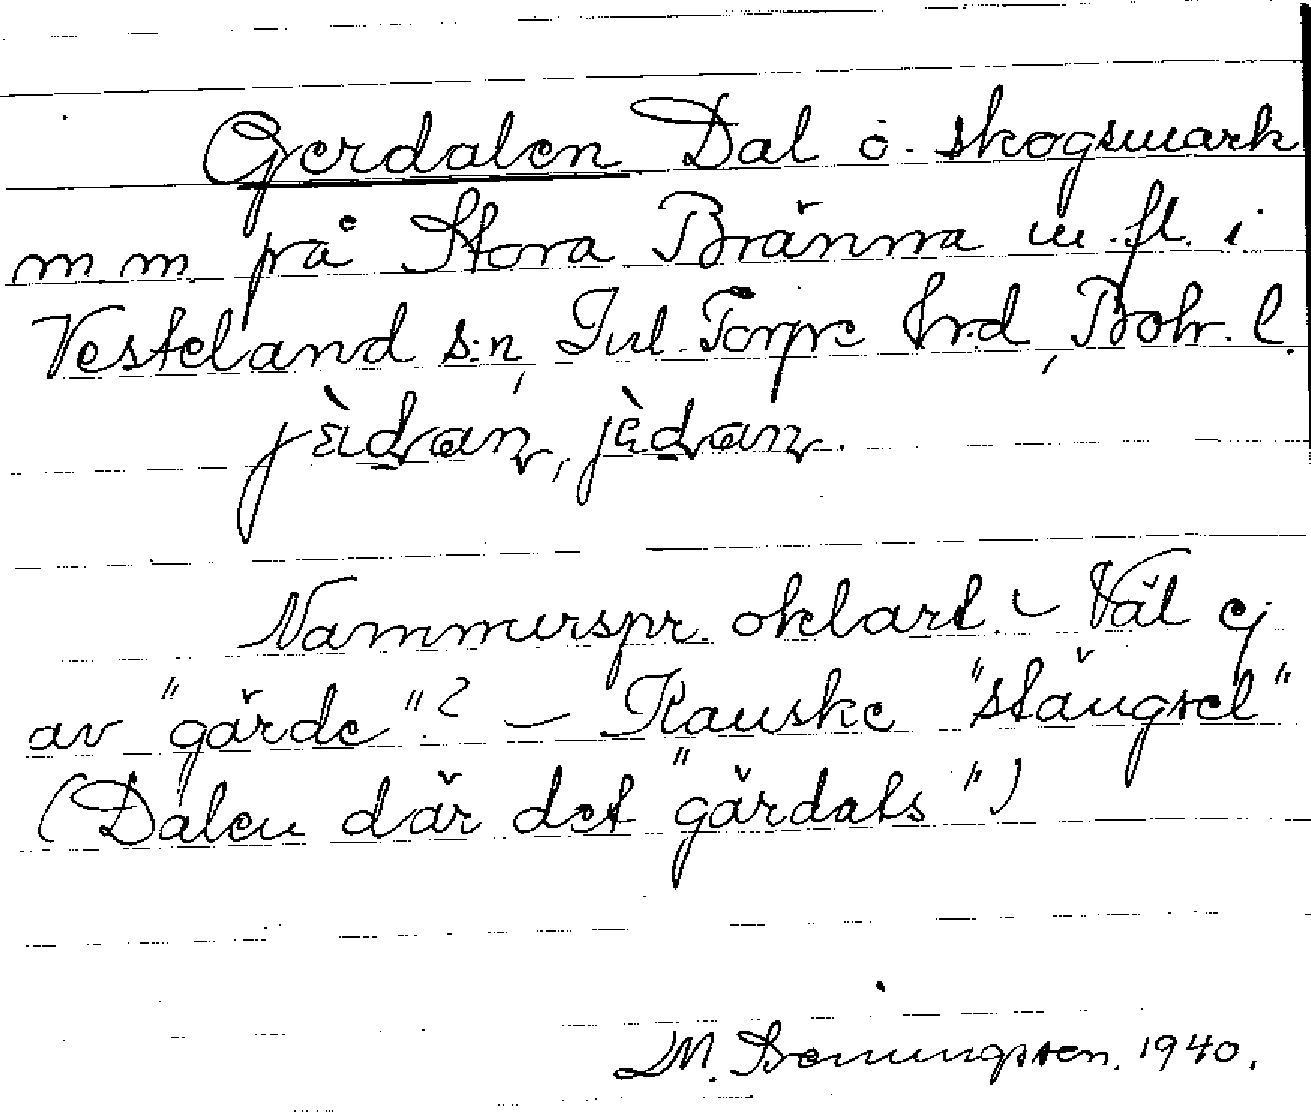 Gerdalen Dal o. skogsmark
m m på Stora Bränna m.fl. i
Vesteland s:n, Inl. Torpe hrd, Boh. l.
jèdan, jèdan.
Namnurspr. oklart. – Väl ej
av "gärde"? – Kanske "stängsel"
(Dalen där det "gärdats")
M. Brenningsten. 1940.